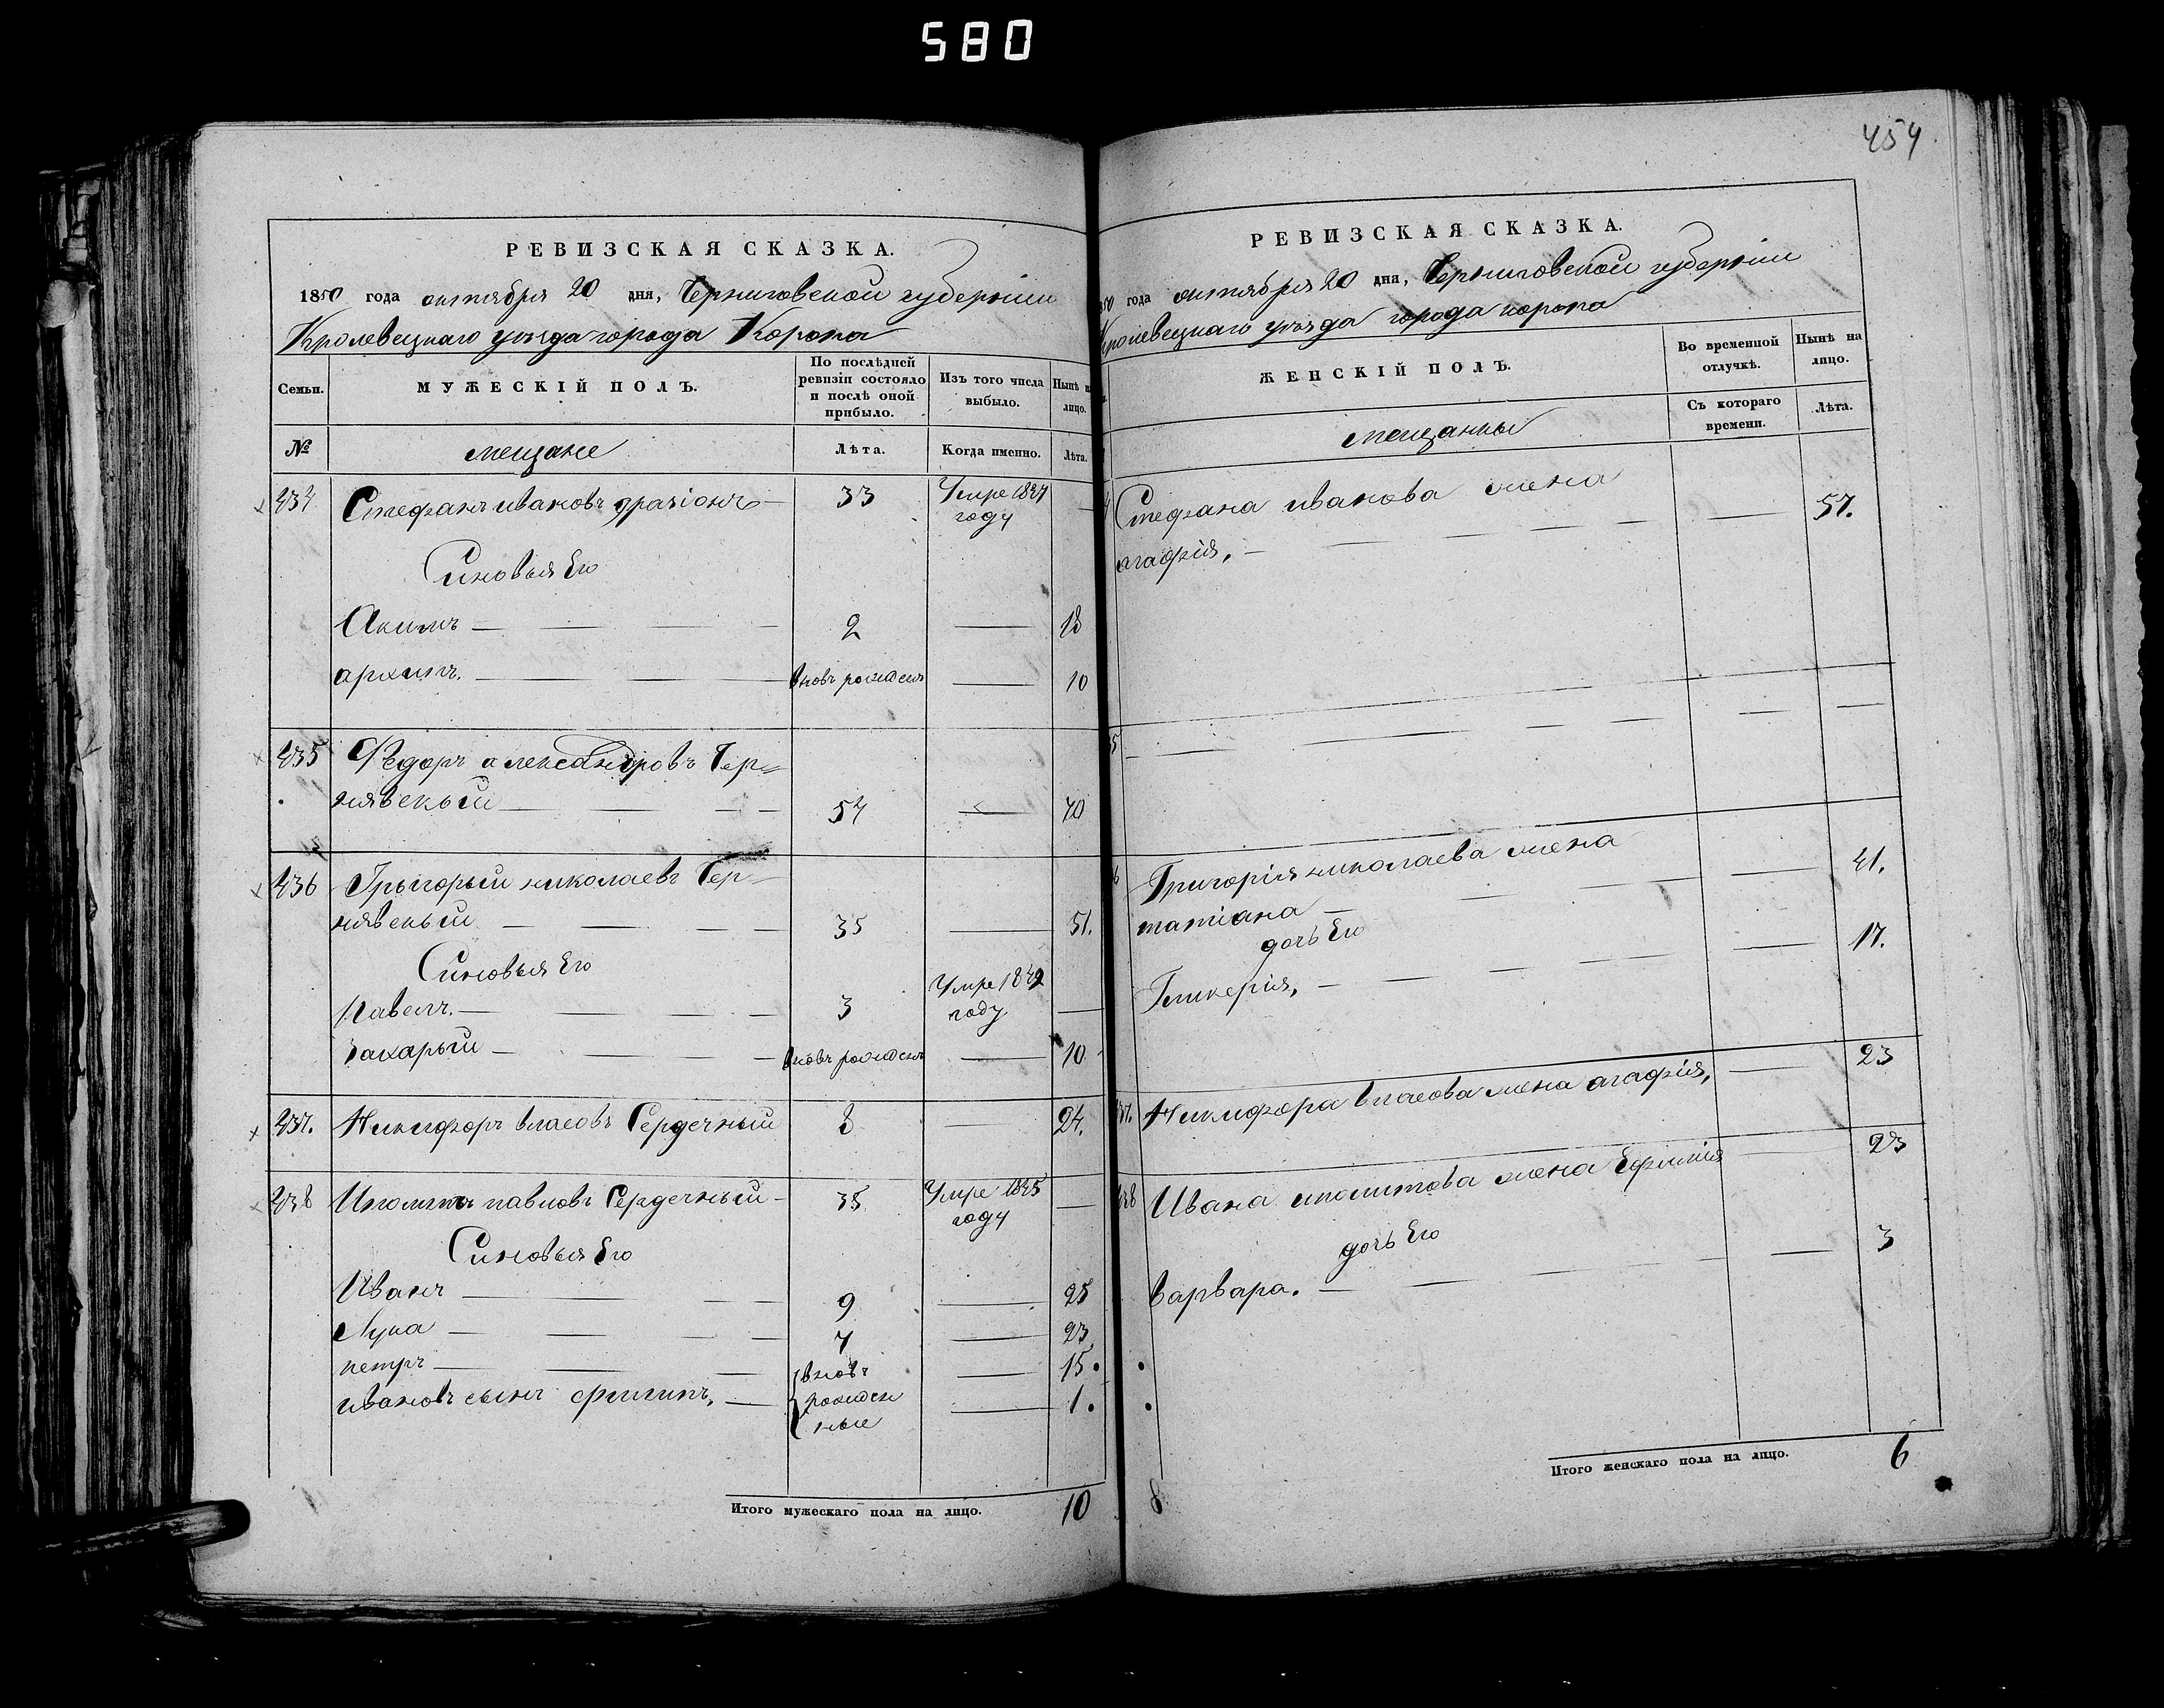 580
454
РЕВИЗСКАЯ СКАЗКА.
1850 года октября 20 дня, Черниговской губернии
Кролевецкаго уезда города Коропа
Семьи.
МУЖЕСКІЙ ПОЛЪ.
По послѣдней ревизіи состояло и послѣ оной прибыло.
Изъ того числа выбыло.
Нынѣ на лицо.
№
мещане
Лѣта.
Когда именно.
Лѣта.
434 Стефанъ ивановъ 33 Умре 1847 году —
Синовья Его
Акимъ — 2 — 18
архипъ. — вновь рожденъ — 10
435 Федоръ александровъ Чер=
нявскый — 54 — 70
436 Грыгорый николаевъ Чер=
нявскый — 35 — 51.
Синовья Его
Павелъ. — 3 Умре 1842 году —
Захарый — вновь рожденъ — 10
437. Никифоръ власовъ Сердечный 8 — 24.
438 Иполытъ павловъ Сердечный - 35 Умре 1845 году —
Синовья Его
Иванъ — 9 — 25
Лука — 7 — 23
петръ — вновь — 15.
ивановъ сынъ филипъ. — рожден ные — 1.
Итого мужескаго пола на лицо. 10
РЕВИЗСКАЯ СКАЗКА.
1850 года октября 20 дня, Черниговской губерніи
Кролевецкаго уезда города коропа
ЖЕНСКІЙ ПОЛЪ.
Во временной отлучкѣ.
Нынѣ на лицо.
мещанкы
Съ котораго времени.
Лѣта.
Стефана иванова жена
агафія, — — 57.
35 —
6 Григорія николаева жена
татіана — — 41.
дочь Его
Гликерія, — — 17.
437. Никифора власова жена агафія, — 23
438 Ивана иполитова жена Ефимія — 23
дочь Его
варвара. — — 3
Итого женскаго пола на лицо. 6
8